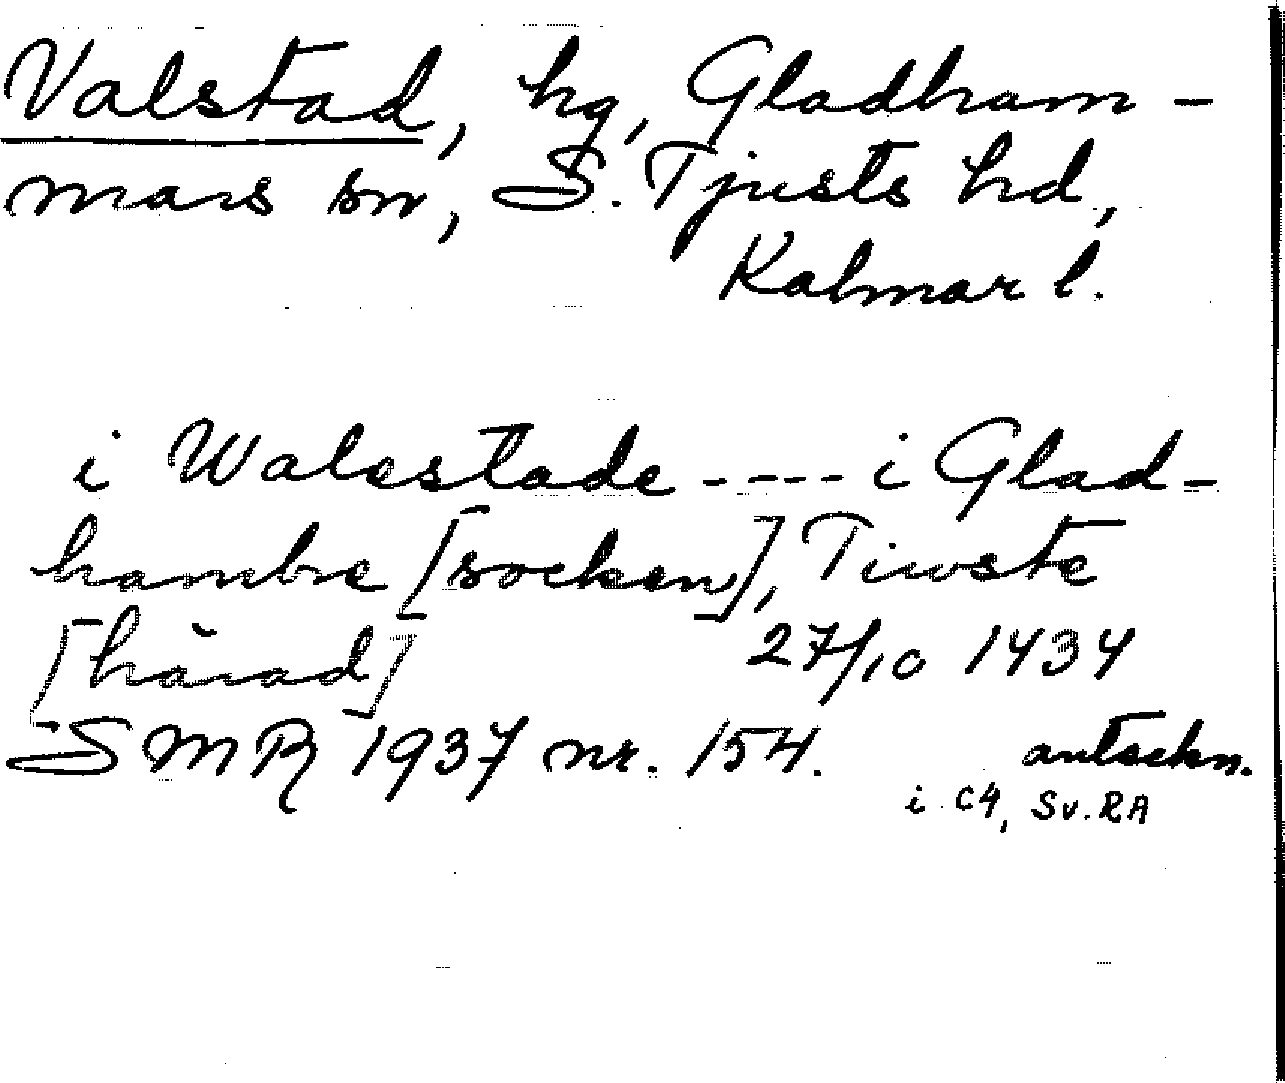 Valstad, hg, Gladham-
mars sn, S. Tjusts hd,
Kalmar l.
i Walestade ---- i Glad-
hambre [socken], Tiwste
[härad] 27/10 1434
SMR 1937 nr. 154. anteckn.
i C4, Sv. RA